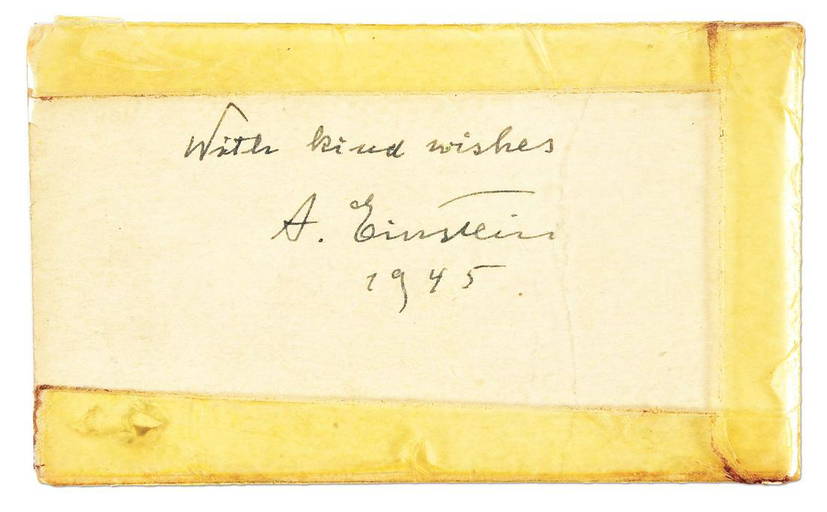 With kind wishes
A. Einstein
1945.